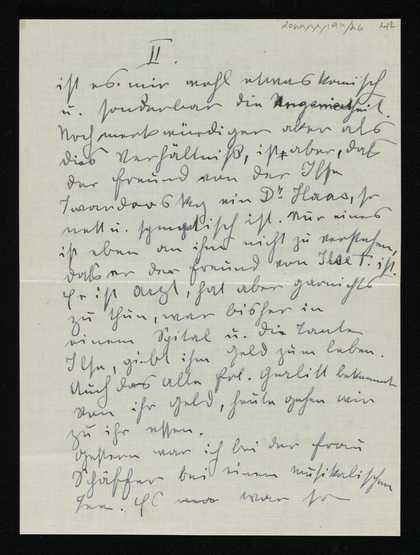 II.
ist es mir wohl etwas komisch
u. sonderbar die
Noch merkwürdiger aber als
dies Verhältniss, ist aber, daß
der Freund von der Ilse
ein Dr Haas, so
nett u. sympatisch ist. Nur eines
ist eben an ihm nicht zu verstehen,
daß er der Freund von Ilse I. ist.
Er ist Arzt, hat aber garnichts
zu thun, war bisher in
einem Spital u. die Tante
Ilse, giebt ihm Geld zum leben.
Auch das alte Frl. bekommt
von ihr Geld, heute gehen wir
zu ihr essen.
Gestern war ich bei der Frau
Schäffer bei einem musikalischen
Tee. Es war so